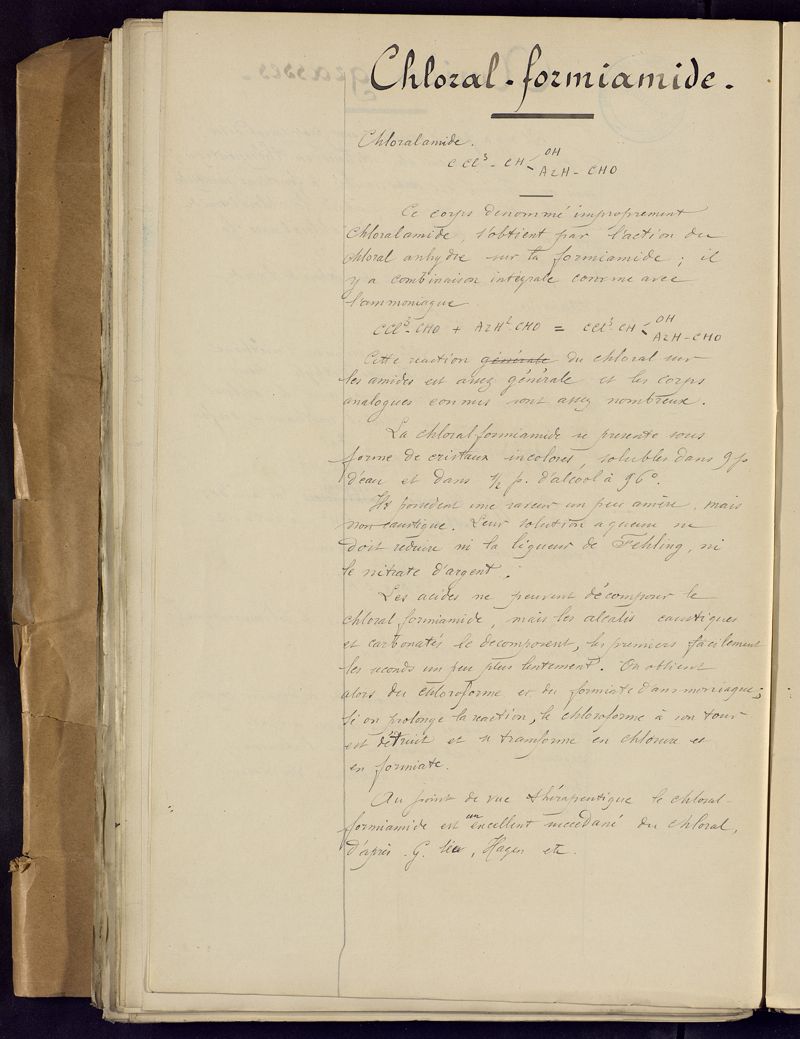 Chloral-formiamide.
Chloralamide.
CCl³-CH< OH
AzH-CHO
Ce corps denommé improprement
Chloralamide, s'obtient par l'action du
chloral anhydre sur la formiamide ; il
y a combinaison intégrale comme avec
l'ammoniaque.
CCl³-CHO + AzH²-CHO = CCl³-CH< OH
AzH-CHO
Cette reaction générale du chloral sur
les amides est assez générale et les corps
analogues connus sont assez nombreux.
La chloralformiamide se presente sous
forme de cristaux incolores, solubles dans 9 p.
d'eau et dans ½ p. d'alcool à 96°.
Ils possedent une saveur un peu amère, mais
non caustique. Leur solution aqueuse ne
doit réduire ni la liqueur de Fehling, ni
le nitrate d'argent.
Les acides ne peuvent décomposer le
chloralformiamide, mais les alcalis caustiques
et carbonatés le decomposent, les premiers facilement
les seconds un peu plus lentement. On obtient
alors du chloroforme et du formiate d'ammoniaque ;
si on prolonge la reaction, le chloroforme à son tour
est détruit et se transforme en chlorure et
en formiate.
Au point de vue thérapeutique le chloral-
formiamide est un excellent succedané du chloral,
d'après G. Hager etc.